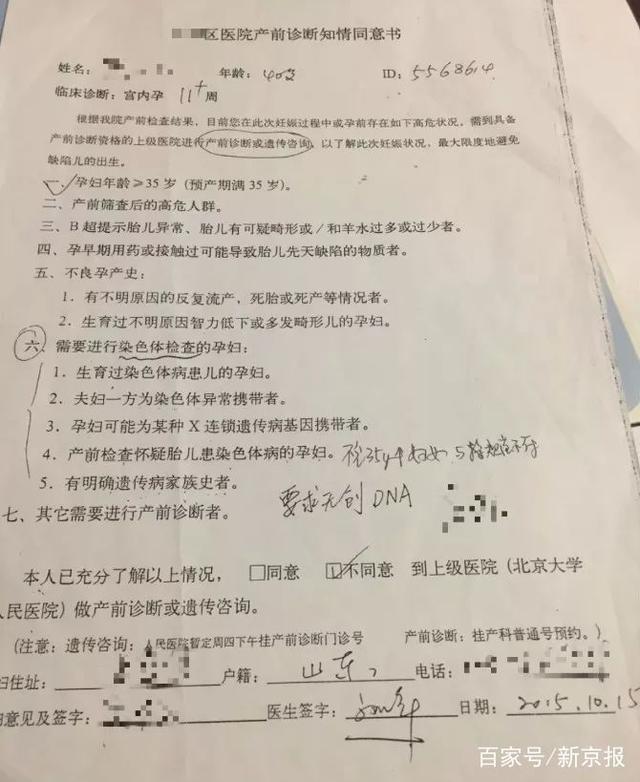 区医院产前诊断知情同意书
姓名： 年龄：40岁 ID：5568614
临床诊断：宫内孕 11⁺周
根据我院产前检查结果，目前您在此次妊娠过程中或孕前存在如下高危状况，需到具备
产前诊断资格的上级医院进行产前诊断或遗传咨询，以了解此次妊娠状况，最大限度地避免
缺陷儿的出生。
一、孕妇年龄≥35岁（预产期满35岁）。
二、产前筛查后的高危人群。
三、B超提示胎儿异常、胎儿有可疑畸形或／和羊水过多或过少者。
四、孕早期用药或接触过可能导致胎儿先天缺陷的物质者。
五、不良孕产史：
1．有不明原因的反复流产，死胎或死产等情况者。
2．生育过不明原因智力低下或多发畸形儿的孕妇。
六、需要进行染色体检查的孕妇：
1．生育过染色体病患儿的孕妇。
2．夫妇一方为染色体异常携带者。
3．孕妇可能为某种X连锁遗传病基因携带者。
4．产前检查怀疑胎儿患染色体病的孕妇。
5．有明确遗传病家族史者。
七、其它需要进行产前诊断者。
要求无创DNA
本人已充分了解以上情况，□同意 ☑不同意 到上级医院（北京大学
人民医院）做产前诊断或遗传咨询。
（注意：遗传咨询：人民医院暂定周四下午挂产前诊断门诊号 产前诊断：挂产科普通号预约。）
妇住址： 户籍：山东 电话：
意见及签字： 医生签字： 日期：2015.10.15
百家号/新京报